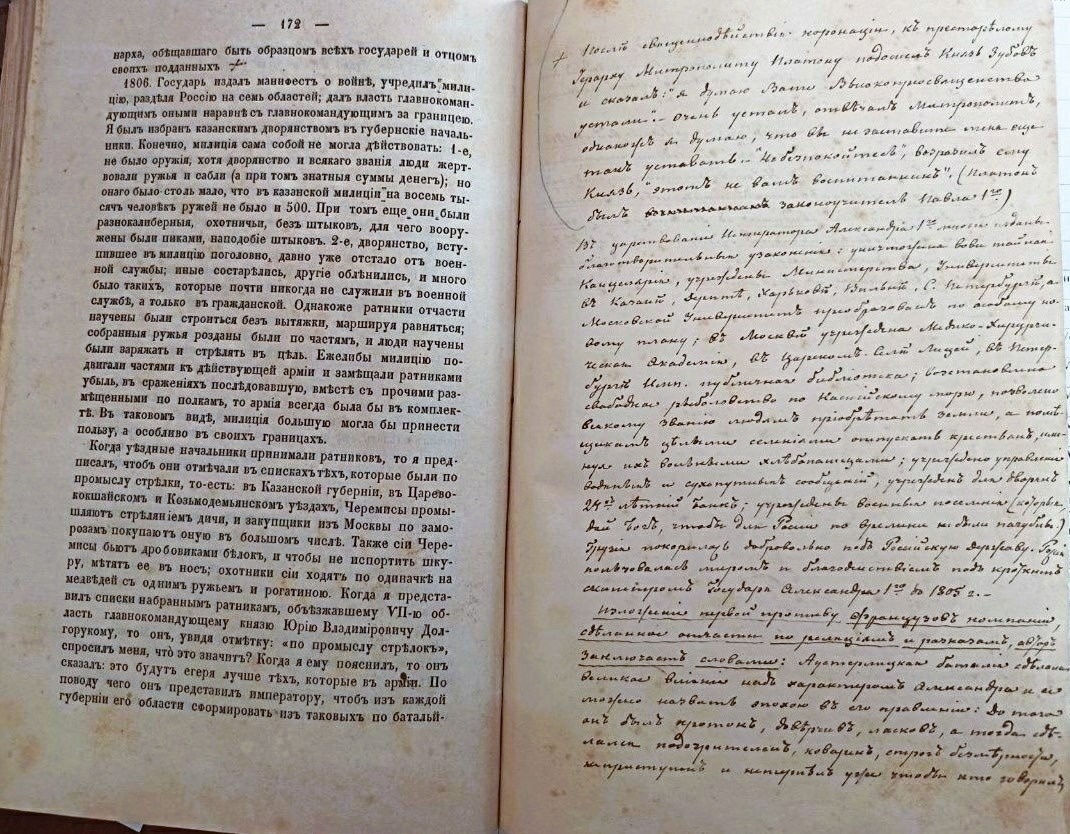 — 172 —
нарха, обѣщавшаго быть образомъ всѣхъ государей и отцомъ
своихъ подданныхъ +
1806. Государь издалъ манифестъ о войнѣ, учредилъ мили-
цію, раздѣля Россію на семь областей; далъ власть главнокоман-
дующимъ оными наравнѣ съ главнокомандующимъ за границею.
Я былъ избранъ казанскимъ дворянствомъ въ губернскіе началь-
ники. Конечно, милиція сама собой не могла дѣйствовать: 1-е,
не было оружія; хотя дворянство и всякаго званія люди жерт-
вовали ружья и сабли (а при томъ знатныя суммы денегъ); но
онаго было столь мало, что въ казанской милиціи на восемь ты-
сячъ человѣкъ ружей не было и 500. При томъ еще они были
разнокалиберныя, охотничьи, безъ штыковъ, для чего воору-
жены были пиками, наподобіе штыковъ. 2-е, дворянство, всту-
пившее въ милицію поголовно, давно уже отстало отъ воен-
ной службы; иные состарѣлись, другіе облѣнились, и много
было такихъ, которые почти никогда не служили въ военной
службѣ, а только въ гражданской. Однакоже ратники отчасти
научены были строиться безъ вытяжки, маршируя равняться;
собранныя ружья розданы были по частямъ, и люди научены
были заряжать и стрѣлять въ цѣль. Ежелибы милицію по-
двигали частями къ дѣйствующей арміи и замѣщали ратниками
убыль, въ сраженіяхъ послѣдовавшую, вмѣстѣ съ прочими раз-
мѣщенными по полкамъ, то армія всегда была бы въ комплек-
тѣ. Въ таковомъ видѣ, милиція большую могла бы принести
пользу, а особливо въ своихъ границахъ.
Когда уѣздные начальники принимали ратниковъ, то я пред-
писалъ, чтобъ они отмѣчали въ спискахъ тѣхъ, которые были по
промыслу стрѣлки, то-есть: въ Казанской губерніи, въ Царево-
кокшайскомъ и Козьмодемьянскомъ уѣздахъ, Черемисы промы-
шляютъ стрѣляніемъ дичи, и закупщики изъ Москвы по замо-
розамъ покупаютъ оную въ большомъ числѣ. Также сіи Чере-
мисы бьютъ дробовиками бѣлокъ, и чтобы не испортить шку-
ру, мѣтятъ ее въ носъ; охотники сіи ходятъ по одиначкѣ на
медвѣдей съ однимъ ружьемъ и рогатиною. Когда я предста-
вилъ списки набраннымъ ратникамъ, объѣзжавшему VII-ю об-
ласть главнокомандующему князю Юрію Владиміровичу Дол-
горукому, то онъ, увидя отмѣтку: «по промыслу стрѣлокъ»,
спросилъ меня, что это значитъ? Когда я ему пояснилъ, то онъ
сказалъ: это будутъ егеря лучше тѣхъ, которые въ арміи. По
поводу чего онъ представилъ императору, чтобъ изъ каждой
губерніи его области сформировать изъ таковыхъ по баталь-
+ Послѣ священнодѣйствія коронаціи, къ престарѣлому
Іерарху Митрополиту Платону подошелъ Князь Зубовъ
и сказалъ: "я думаю Ваше Высокопреосвященство
устали. – Очень усталъ, отвѣчалъ Митрополитъ,
однакожъ я думаю, что вы не заставите меня еще
такъ уставать". – "Не безпокойтесь", возразилъ ему
Князь, "этотъ не вашъ воспитанникъ". (Платонъ
былъ законоучителемъ Павла 1го)
Въ царствованіе Императора Александра 1го многія изданы
благотворительныя узаконенія: уничтожена вовсе тайная
Канцелярія, учреждены Министерства, Университеты
въ Казани, Дерптѣ, Харьковѣ, Вильнѣ, С. Петербургѣ, а
Московской Университетъ преобразованъ по особому но-
вому плану; въ Москвѣ учреждена Медико-Хирурги-
ческая Академія, въ Царскомъ-Селѣ Лицей, въ Петер-
бургѣ Имп. публичная библіотека; возстановлено
свободное рыболовство по Каспійскому морю, позволено
всякому званію людямъ пріобрѣтать земли, а помѣ-
щикамъ цѣлыми селеніями отпускать крестьянъ, име-
нуя ихъ вольными хлѣбопашцами; учреждено управленіе
водяныхъ и сухопутныхъ сообщеній, учрежденъ для дворянъ
24хъ лѣтній банкъ; учреждены военныя поселенія (которыя
дай Богъ, чтобы для Россіи по времени не были пагубны)
Грузія покорилась добровольно подъ Россійскую державу. Россія
пользовалась миромъ и благоденствіемъ подъ кроткимъ
скипетромъ Государя Александра 1го до 1805 г. –
Изложеніе первой противу Французовъ компаніи,
сдѣланное отчасти по реляціямъ и разказамъ, авторъ
заключаетъ словами: Аустерлицкая баталія сдѣлала
великое вліяніе надъ характеромъ Александра и ее
можно назвать эпохою въ его правленіи: До того
онъ былъ кротокъ, довѣрчивъ, ласковъ, а тогда сдѣ-
лался подозрителенъ, коваренъ, строгъ безмѣрно,
неприступенъ и не терпѣлъ уже чтобы кто говорилъ